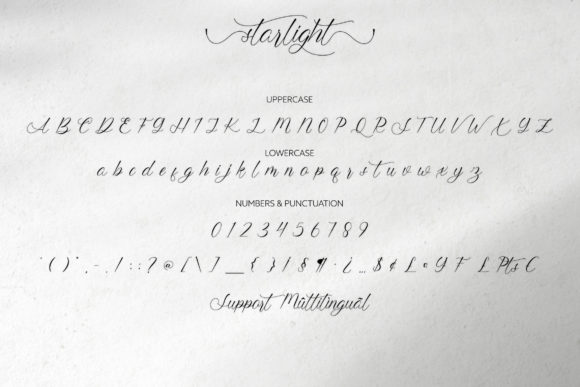 starlight
UPPERCASE
A B C D E F G H I J K L M N O P Q R S T U V W X Y Z
LOWERCASE
a b c d e f g h i j k l m n o p q r s t u v w x y z
NUMBERS & PUNCTUATION
0 1 2 3 4 5 6 7 8 9
' ( ) * , - . / : ; ? @ [ \ ] _ { } | § ¶ · ¿ … $ ¢ £ ¤ ¥ F £ Pts €
Support Mùltilinguāl